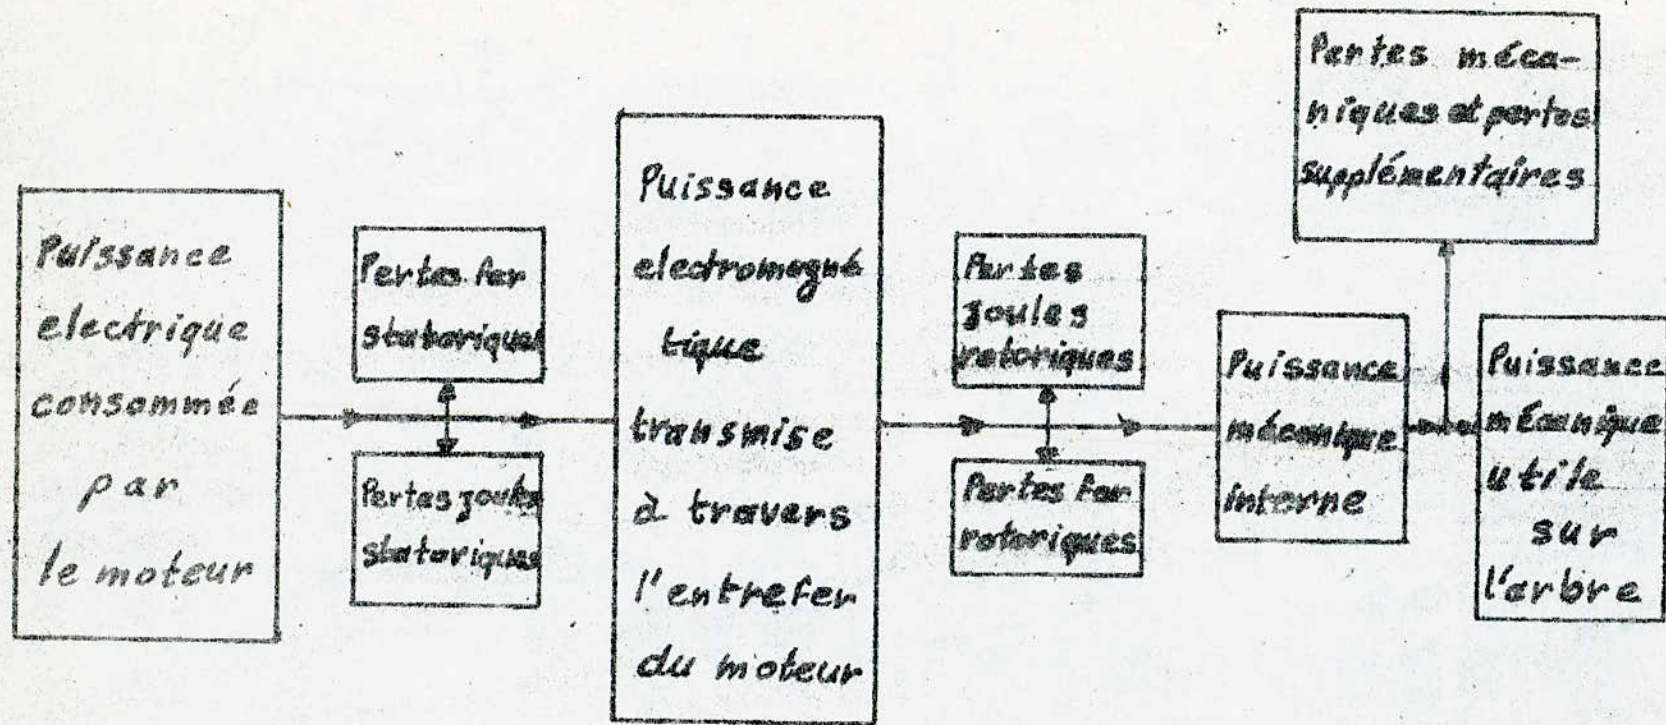 Puissance
electrique
consommée
par
le moteur
Pertes fer
statoriques
Pertes joules
statoriques
Puissance
electromagné
tique
transmise
à travers
l'entrefer
du moteur
Pertes
joules
rotoriques
Pertes fer
rotoriques
Puissance
mécanique
interne
Pertes méca-
niques et pertes
supplémentaires
Puissance
mécanique
utile
sur
l'arbre